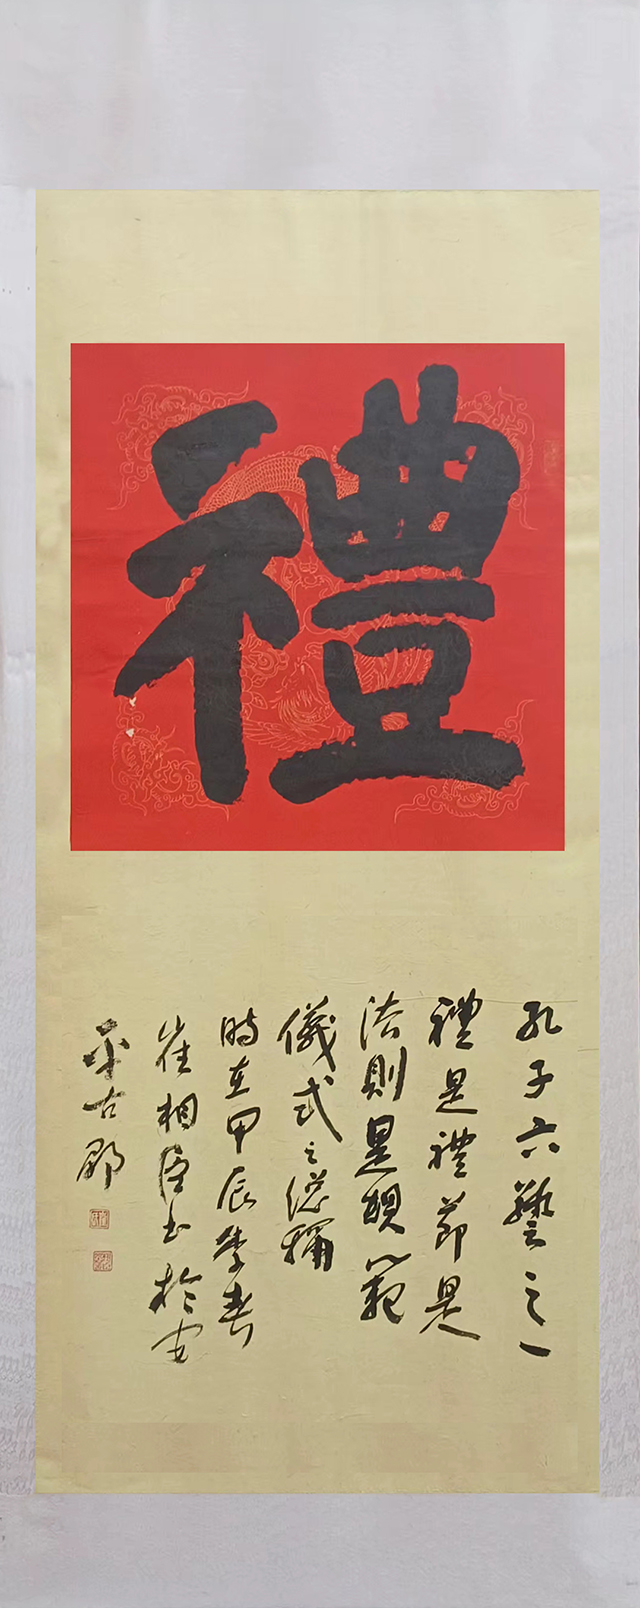 禮
孔子六藝之一
禮是禮節是
法則是規範
儀式之總稱
時在甲辰季春
崔相臣書於安
平古郡